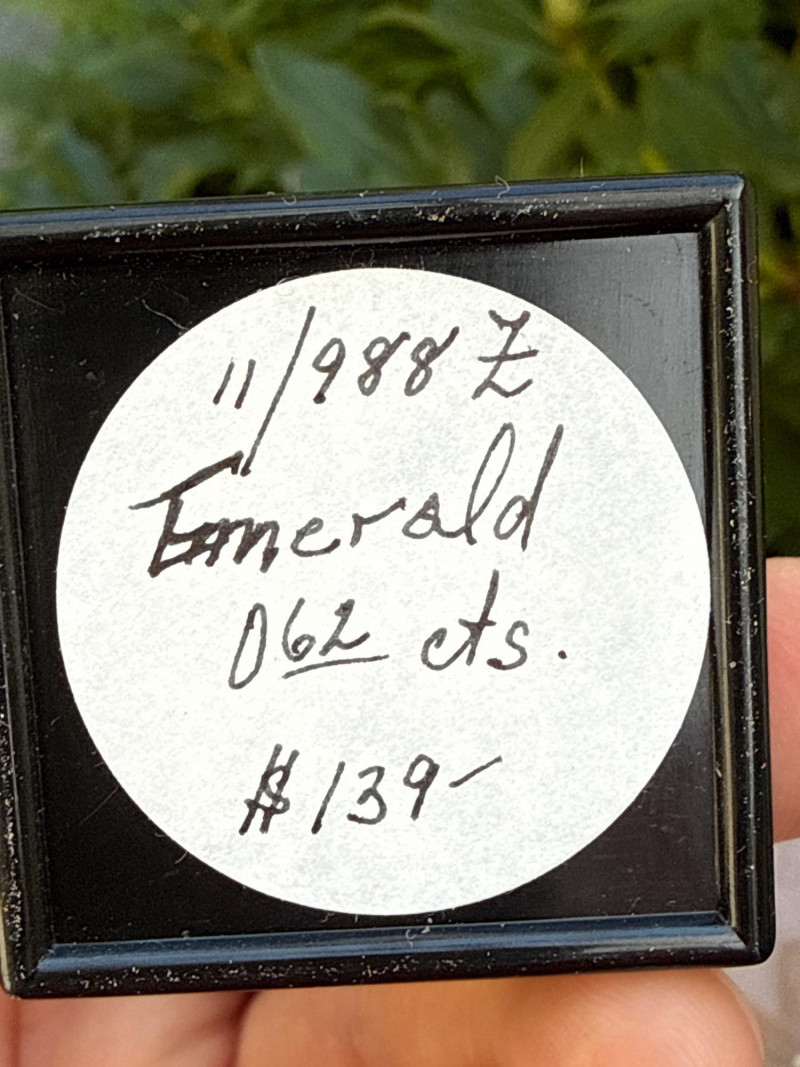 11/988 Z
Emerald
062 cts.
$139-